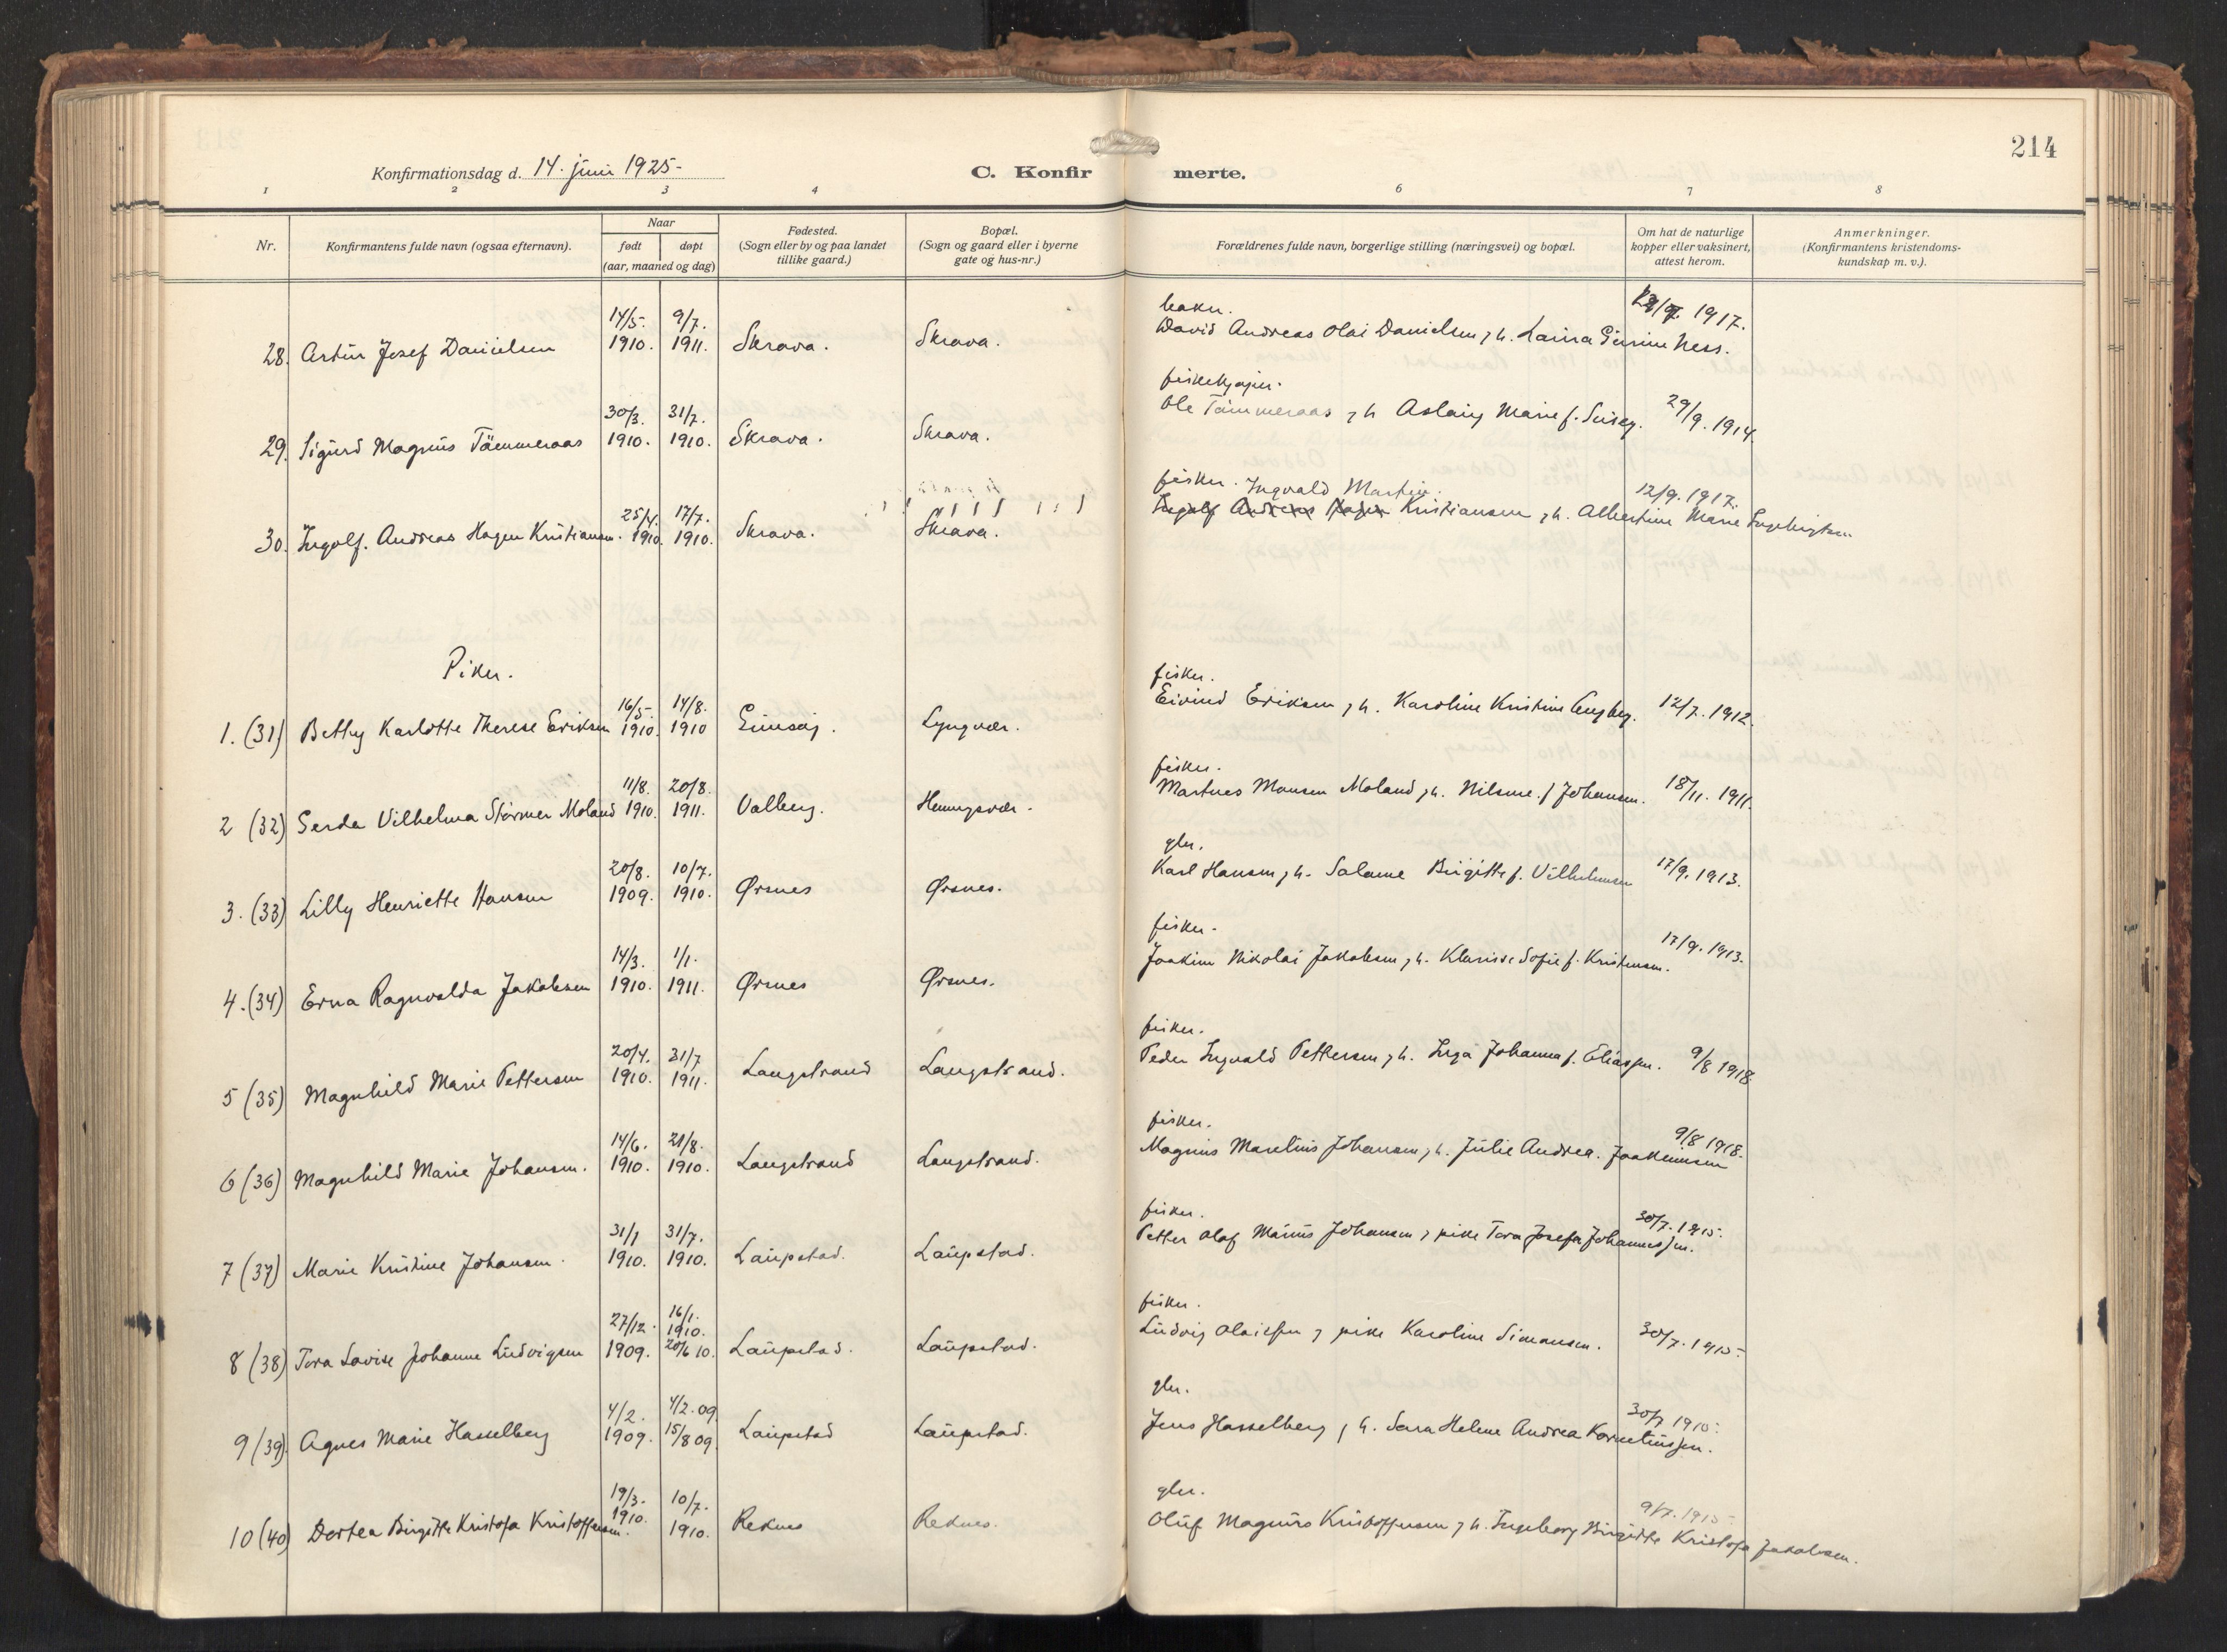 214
Konfirmationsdag d. 14. juni 1925-
C. Konfirmerte.
1 2 3 4 6 7 8
Nr.
Konfirmantens fulde navn (ogsaa efternavn).
Naar
født døpt
(aar, maaned og dag)
Fødested.
(Sogn eller by og paa landet
tillike gaard.)
Bopæl.
(Sogn og gaard eller i byerne
gate og hus-nr.)
Forældrenes fulde navn, borgerlige stilling (næringsvei) og bopæl.
Om hat de naturlige
kopper eller vaksinert,
attest herom.
Anmerkninger.
(Konfirmantens kristendoms-
kundskap m. v.).
14/5. 9/7. baker. 1917.
28. Artur Josef Danielsen 1910. 1911. Skrova. Skrova. David Andreas Olai Danielsen, h. Laura Ness.
30/3. 31/7. fiskekjøper. 29/9. 1914.
29. Sigurd Magnus Tømmeraas 1910. 1910. Skrova. Skrova. Ole Tømmeraas, h Aslaug Marie f.
25/4. 17/7. fisker. Ingvald Martin. 12/9. 1917.
30. Ingolf. Andreas Hagen Kristiansen. 1910. 1910. Skrova. Skrova. Ingolf Andreas Hagen Kristiansen, h. Albertine Marie Ingebrigtsen
Piker.
16/5. 14/8. fisker.
1. (31) Betty Karlotte Therese Eriksen 1910. 1910 Gimsøy. Lyngvær. Eivind Eriksen, h. Karoline Kristine 12/7. 1912.
11/8. 20/8. fisker.
2 (32) Gerda Vilhelma Størmer Moland 1910. 1911. Valberg. Henningsvær. Martines Monsen Moland, h. Nilsine. f Johansen. 18/11. 1911.
20/8. 10/7. gbr.
3. (33) Lilly Henriette Hansen 1909. 1910. Ørsnes Ørsnes. Karl Hansen, h. Salome Birgitte f. Vilhelmsen 17/9. 1913.
14/3. 1/1. fisker.
4. (34) Erna Ragnvalda Jakobsen 1910. 1911. Ørsnes Ørsnes. Joakim Nikolai Jakobsen, h. Klarisse Sofie f. Kristensen. 17/9. 1913.
20/4. 31/7 fisker.
5 (35) Magnhild Marie Pettersen 1910. 1911. Laugstrand Laugstrand. Peder Ingvald Pettersen, h. Inga Johanna f. Eliassen. 9/8 1918.
14/6. 21/8. fisker.
6 (36) Magnhild Marie Johansen. 1910. 1910. Laugstrand Laugstrand. Magnus Marelius Johansen, h. Julie Andrea. Joakimsen 9/8 1918.
31/1 31/7. fisker.
7 (37) Marie Kristine Johansen. 1910. 1910. Laupstad. Laupstad. Petter Olaf Marius Johansen, pike Tora Josefa Johannessen. 30/7. 1915.
27/12. 16/1. 1910. fisker.
8 (38) Tora Lovise Johanne Ludvigsen 1909. 20/6 10. Laupstad. Laupstad. Ludvig Olaissen, pike Karoline Simonsen. 30/7. 1915.
4/2. 4/2. 09 gbr.
9 (39). Agnes Marie Hasselberg 1909. 15/8 09. Laupstad Laupstad. Jens Hasselberg, h. Sara Helene Andrea Korneliussen. 30/7 1915.
19/3. 10/7. gbr.
10 (40) Dortea Birgitte Kristofa Kristoffersen. 1910. 1910. Reknes Reknes. Oluf Magnus Kristoffersen, h. Ingeborg Birgitte Kristofa Jakobsen. 9/7. 1915